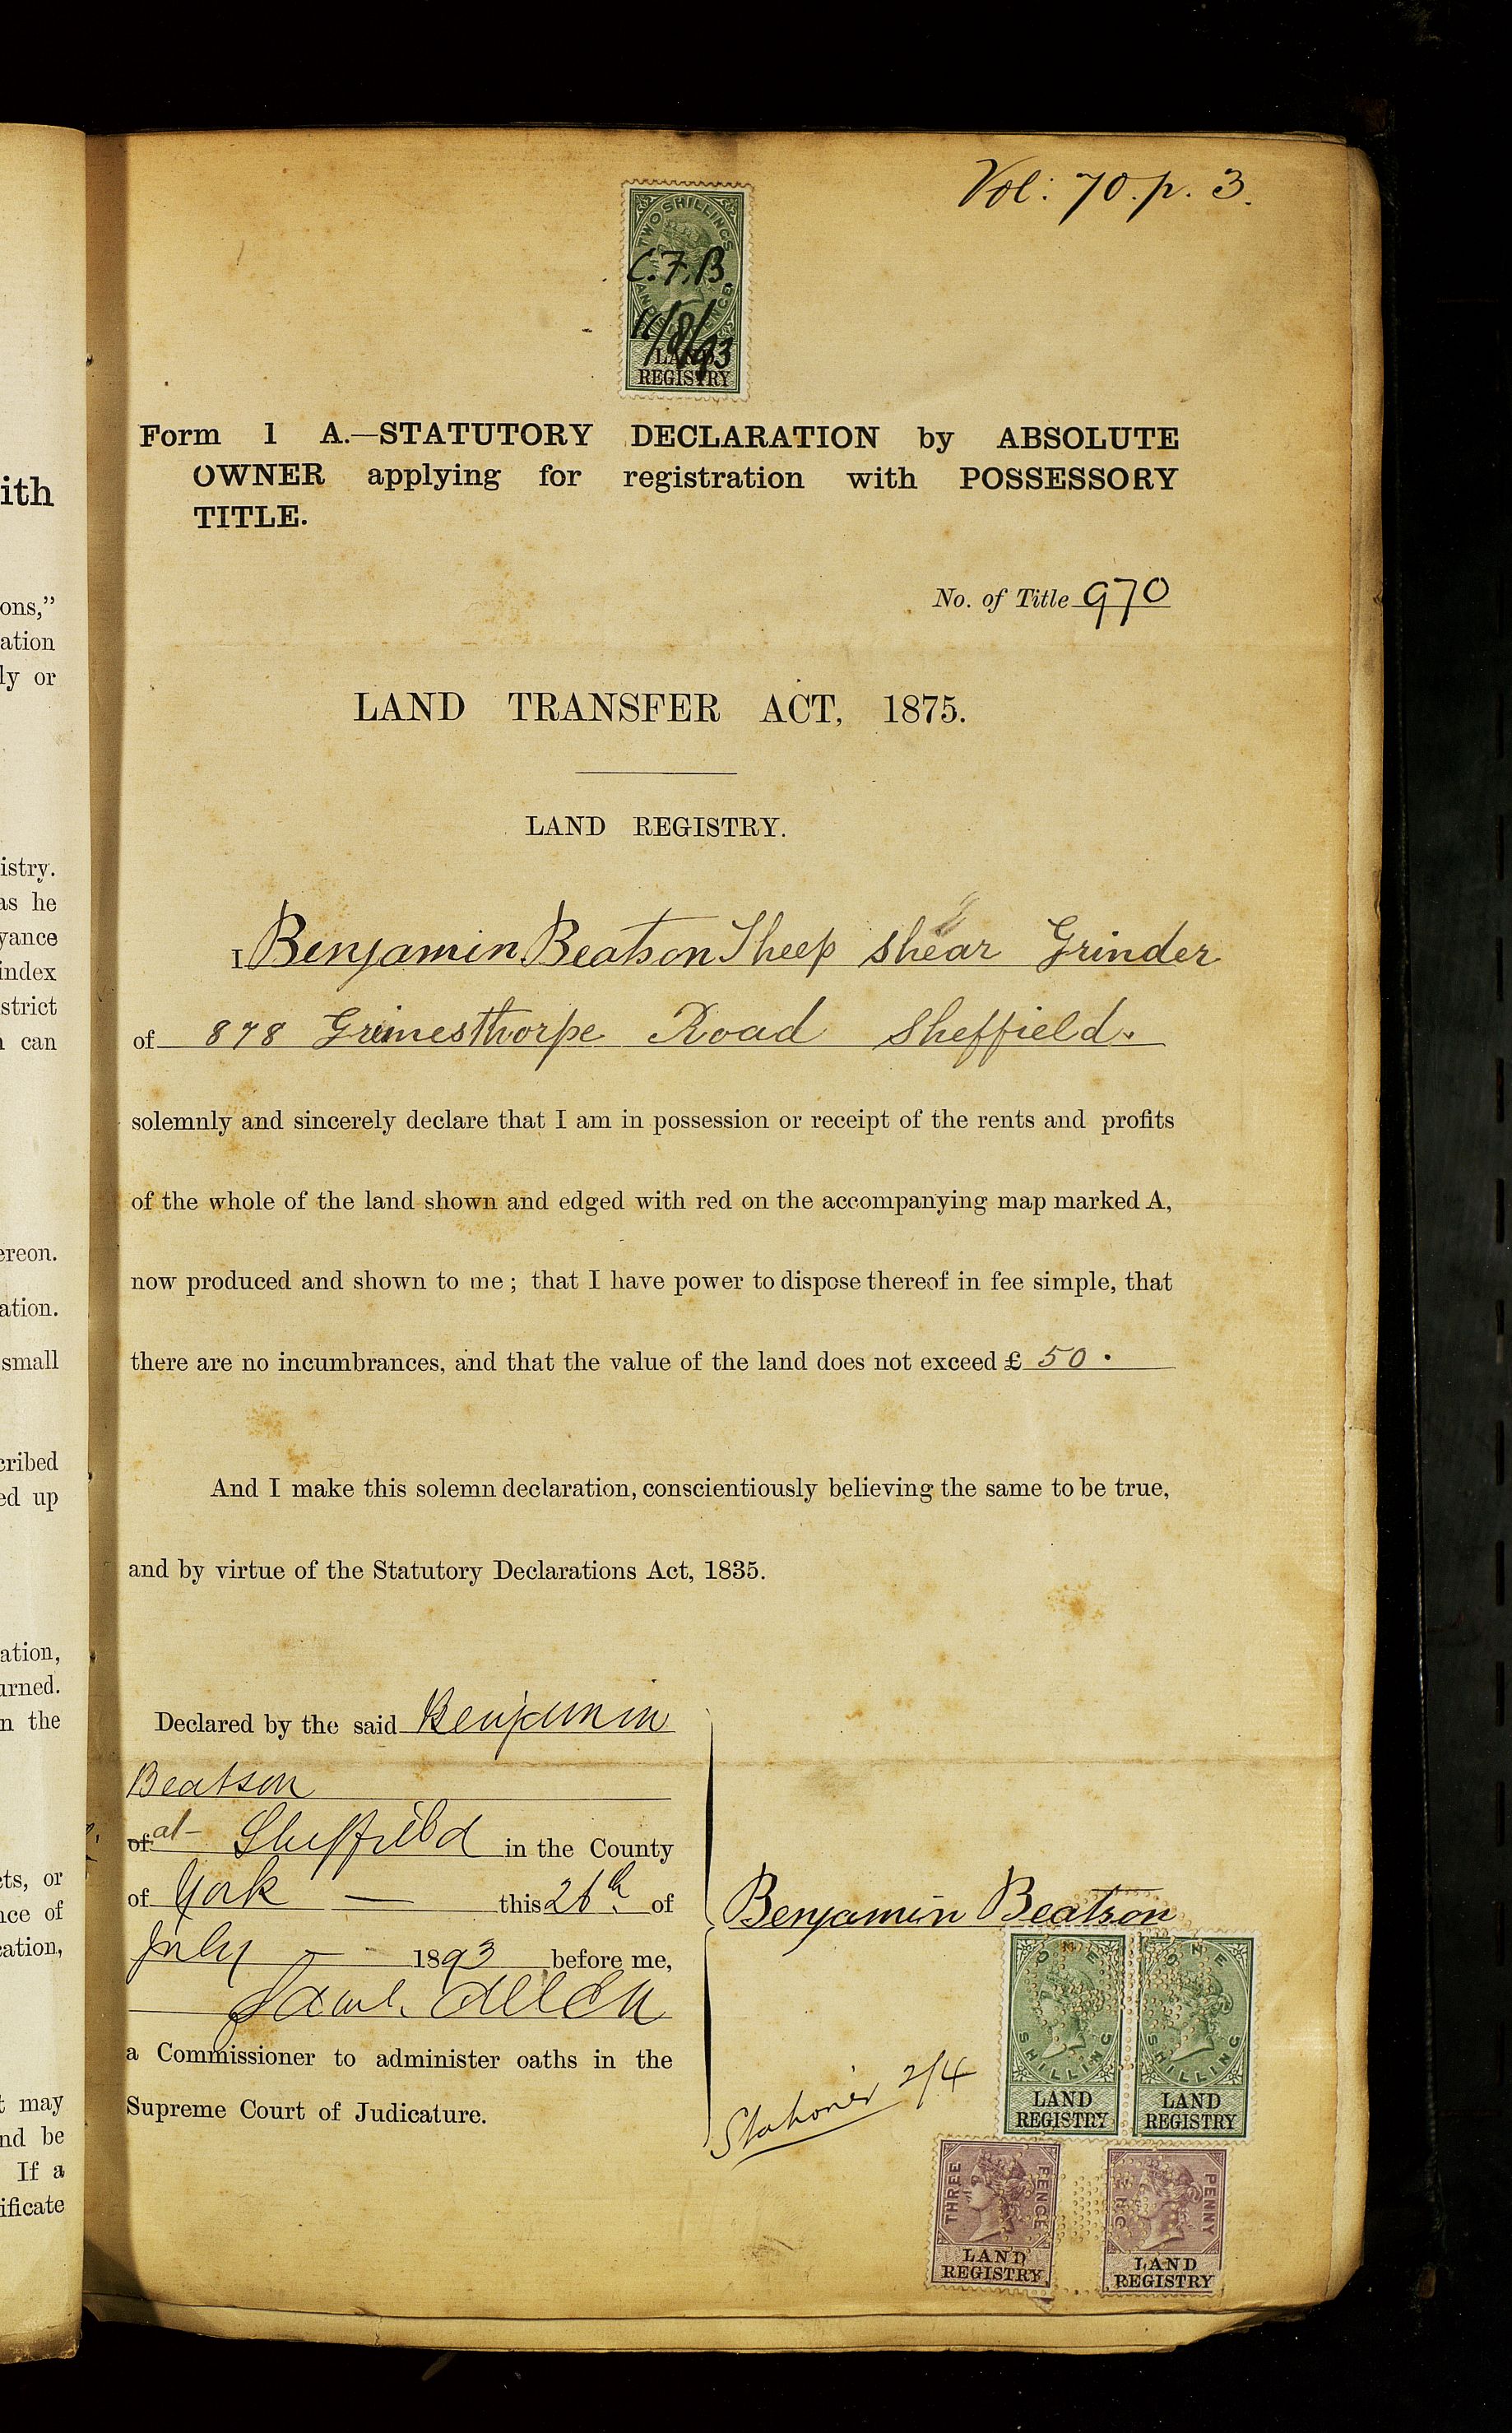 ith
ons,”
ation
ly or
istry.
as he
yance
index
strict
can
ereon.
ation.
small
cribed
ed up
ation,
urned.
n the
cts, or
nce of
cation,
t may
nd be
If a
ificate
Vol: 70. p. 3.
TWO SHILLINGS
C.F.B.
LAND
REGISTRY
Form 1 A.—STATUTORY DECLARATION by ABSOLUTE
OWNER applying for registration with POSSESSORY
TITLE.
No. of Title 970
LAND TRANSFER ACT, 1875.
LAND REGISTRY.
I Benjamin Beatson Sheep shear Grinder
of 878 Grimesthorpe Road Sheffield.
solemnly and sincerely declare that I am in possession or receipt of the rents and profits
of the whole of the land shown and edged with red on the accompanying map marked A,
now produced and shown to me; that I have power to dispose thereof in fee simple, that
there are no incumbrances, and that the value of the land does not exceed £ 50.
And I make this solemn declaration, conscientiously believing the same to be true,
and by virtue of the Statutory Declarations Act, 1835.
Declared by the said Benjamin
Beatson
of at Sheffield in the County
of York — this 26th of
July — 1893 before me,
Saml. Allen
a Commissioner to administer oaths in the
Supreme Court of Judicature.
Benjamin Beatson
Stationer 2/4
ONE SHILLING
LAND
REGISTRY
ONE SHILLING
LAND
REGISTRY
THREE PENCE
LAND
REGISTRY
ONE PENNY
LAND
REGISTRY